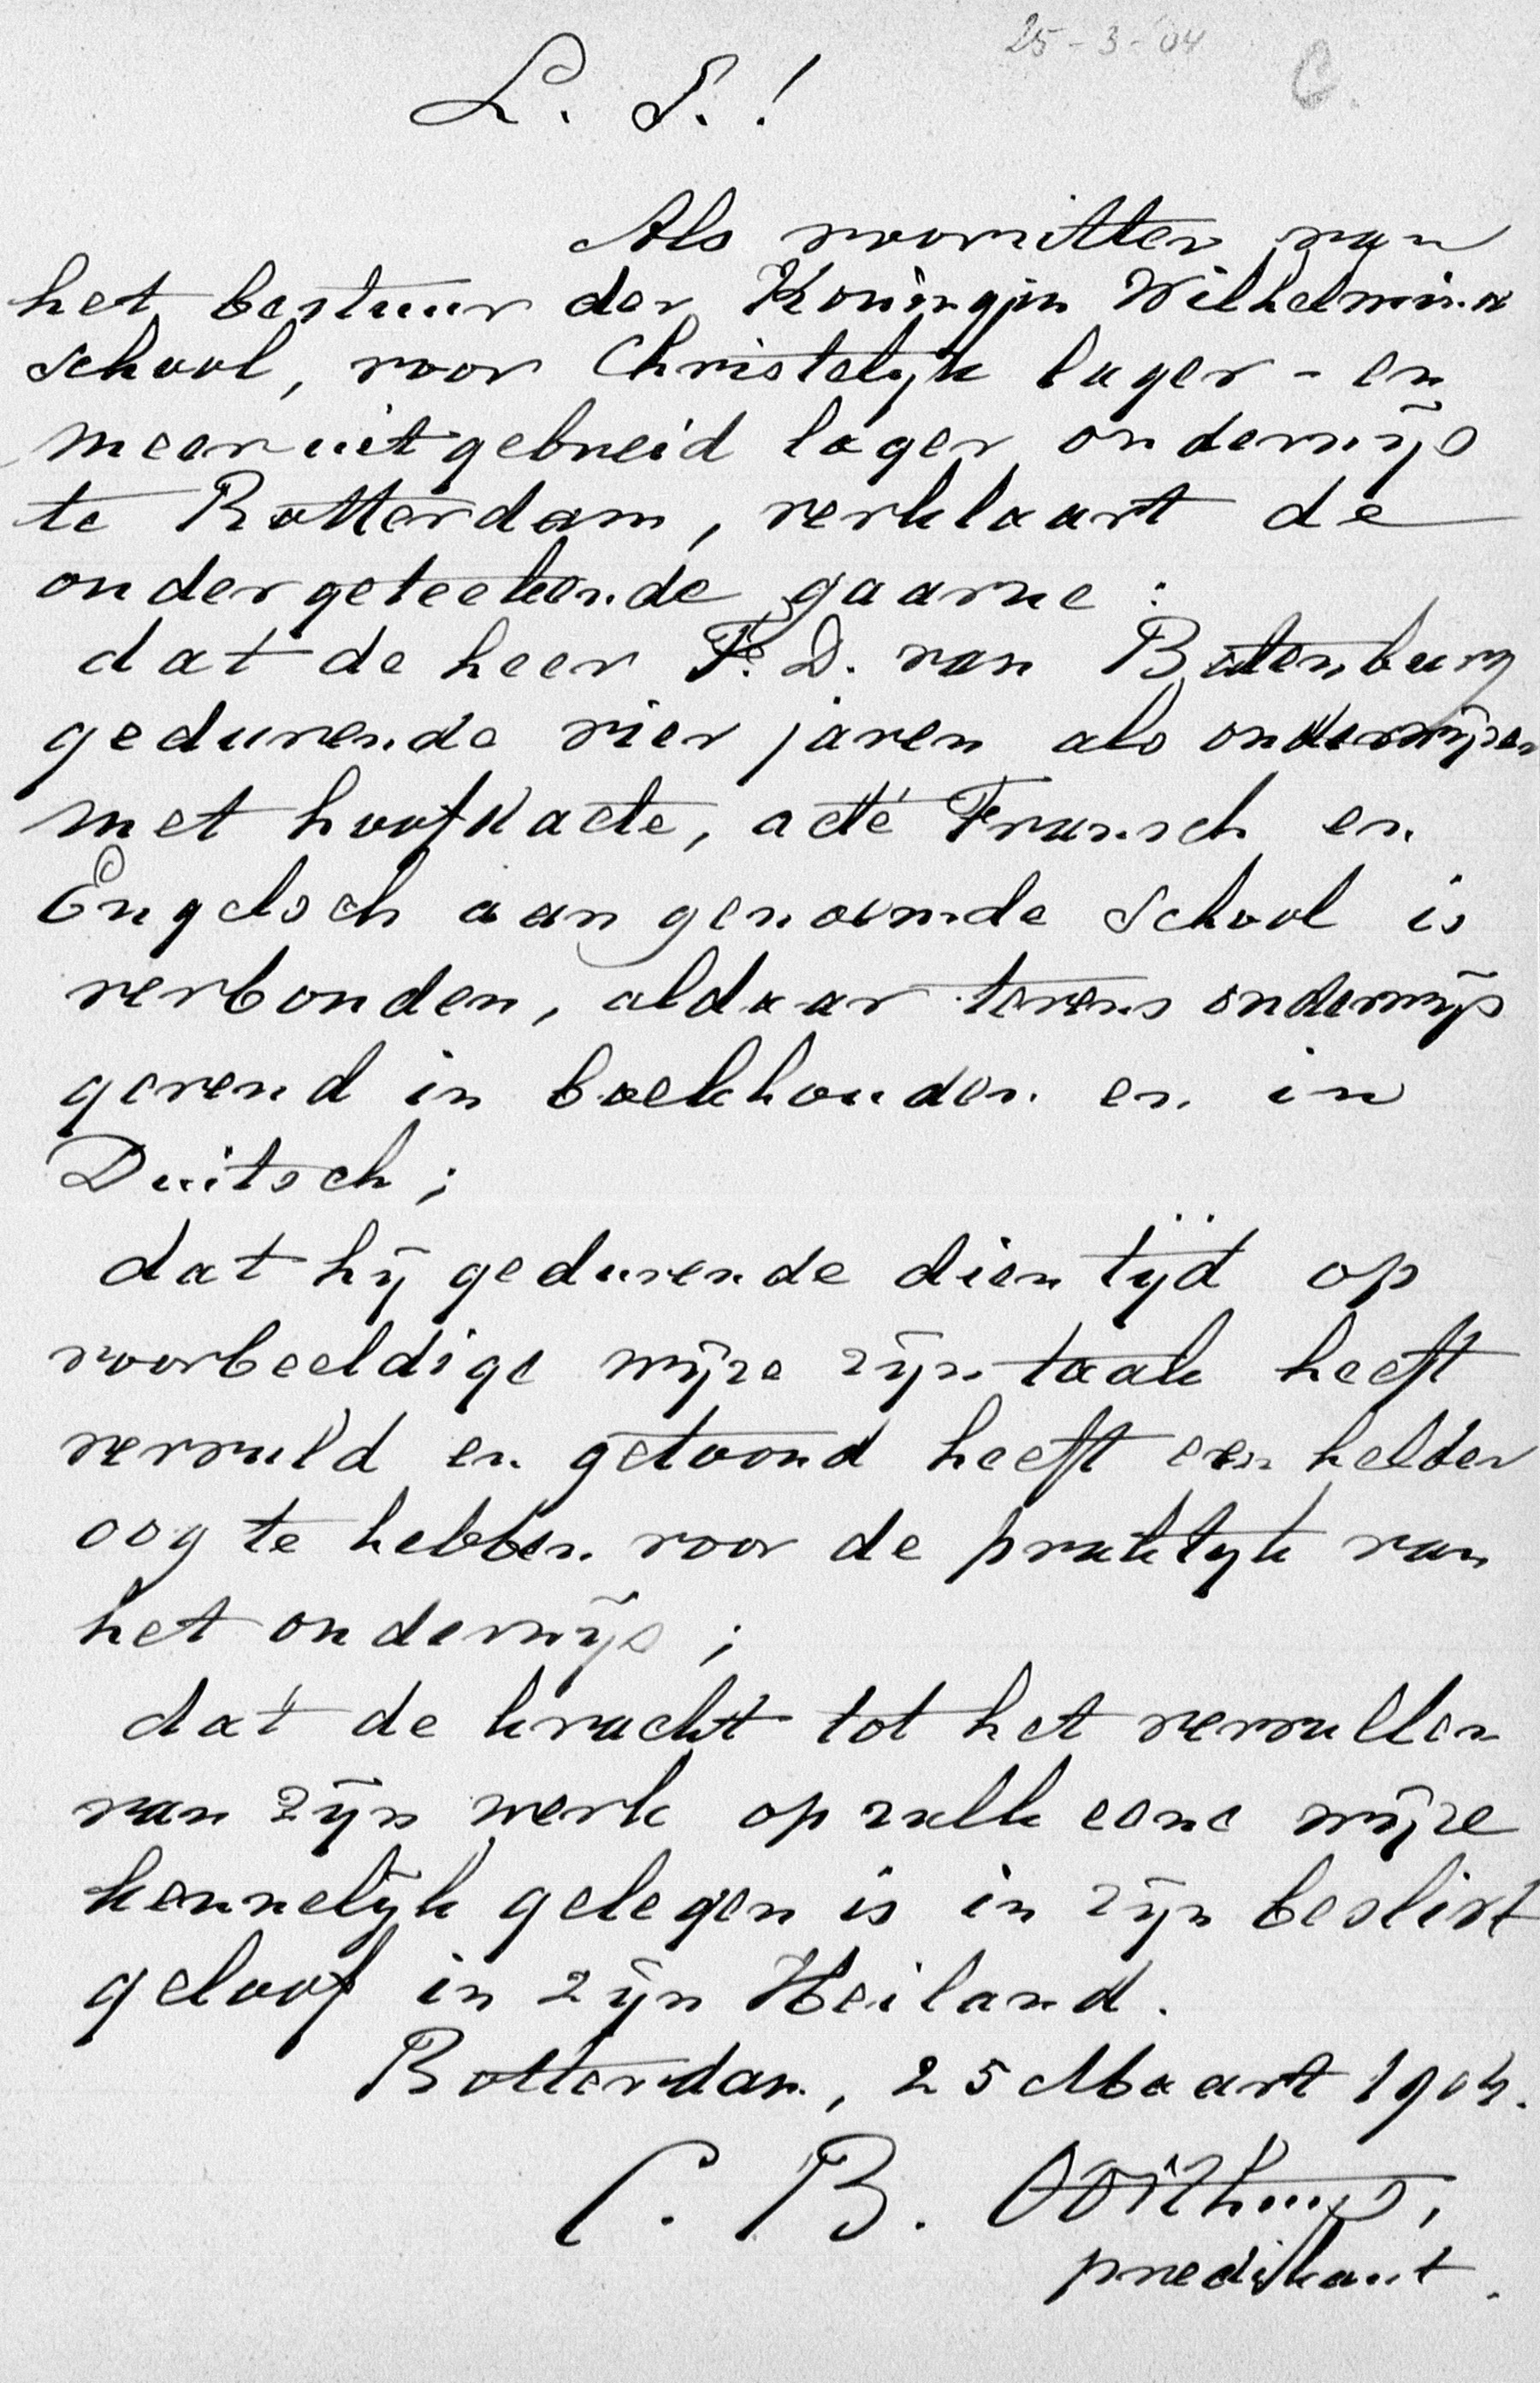 25-3-'04 C.
L. S.!
Als voorzitter van
het bestuur der Koningin Wilhelmina
school, voor Christelijk lager- en
meer uitgebreid lager onderwijs
te Rotterdam, verklaart de
ondergeteekende gaarne:
dat de heer F. D. van Batenburg
gedurende vier jaren als onderwijzer
met hoofdacte, acte Fransch en
Engelsch aan genoemde school is
verbonden, aldaar tevens onderwijs
gevend in boekhouden en in
Duitsch;
dat hij gedurende dien tijd op
voorbeeldige wijze zijn taak heeft
vervuld en getoond heeft een helder
oog te hebben voor de praktijk van
het onderwijs;
dat de kracht tot het vervullen
van zijn werk op zulk eene wijze
kennelijk gelegen is in zijn beslist
geloof in zijn Heiland.
Rotterdam, 25 Maart 1904.
C. B. Oorthuys,
predikant.